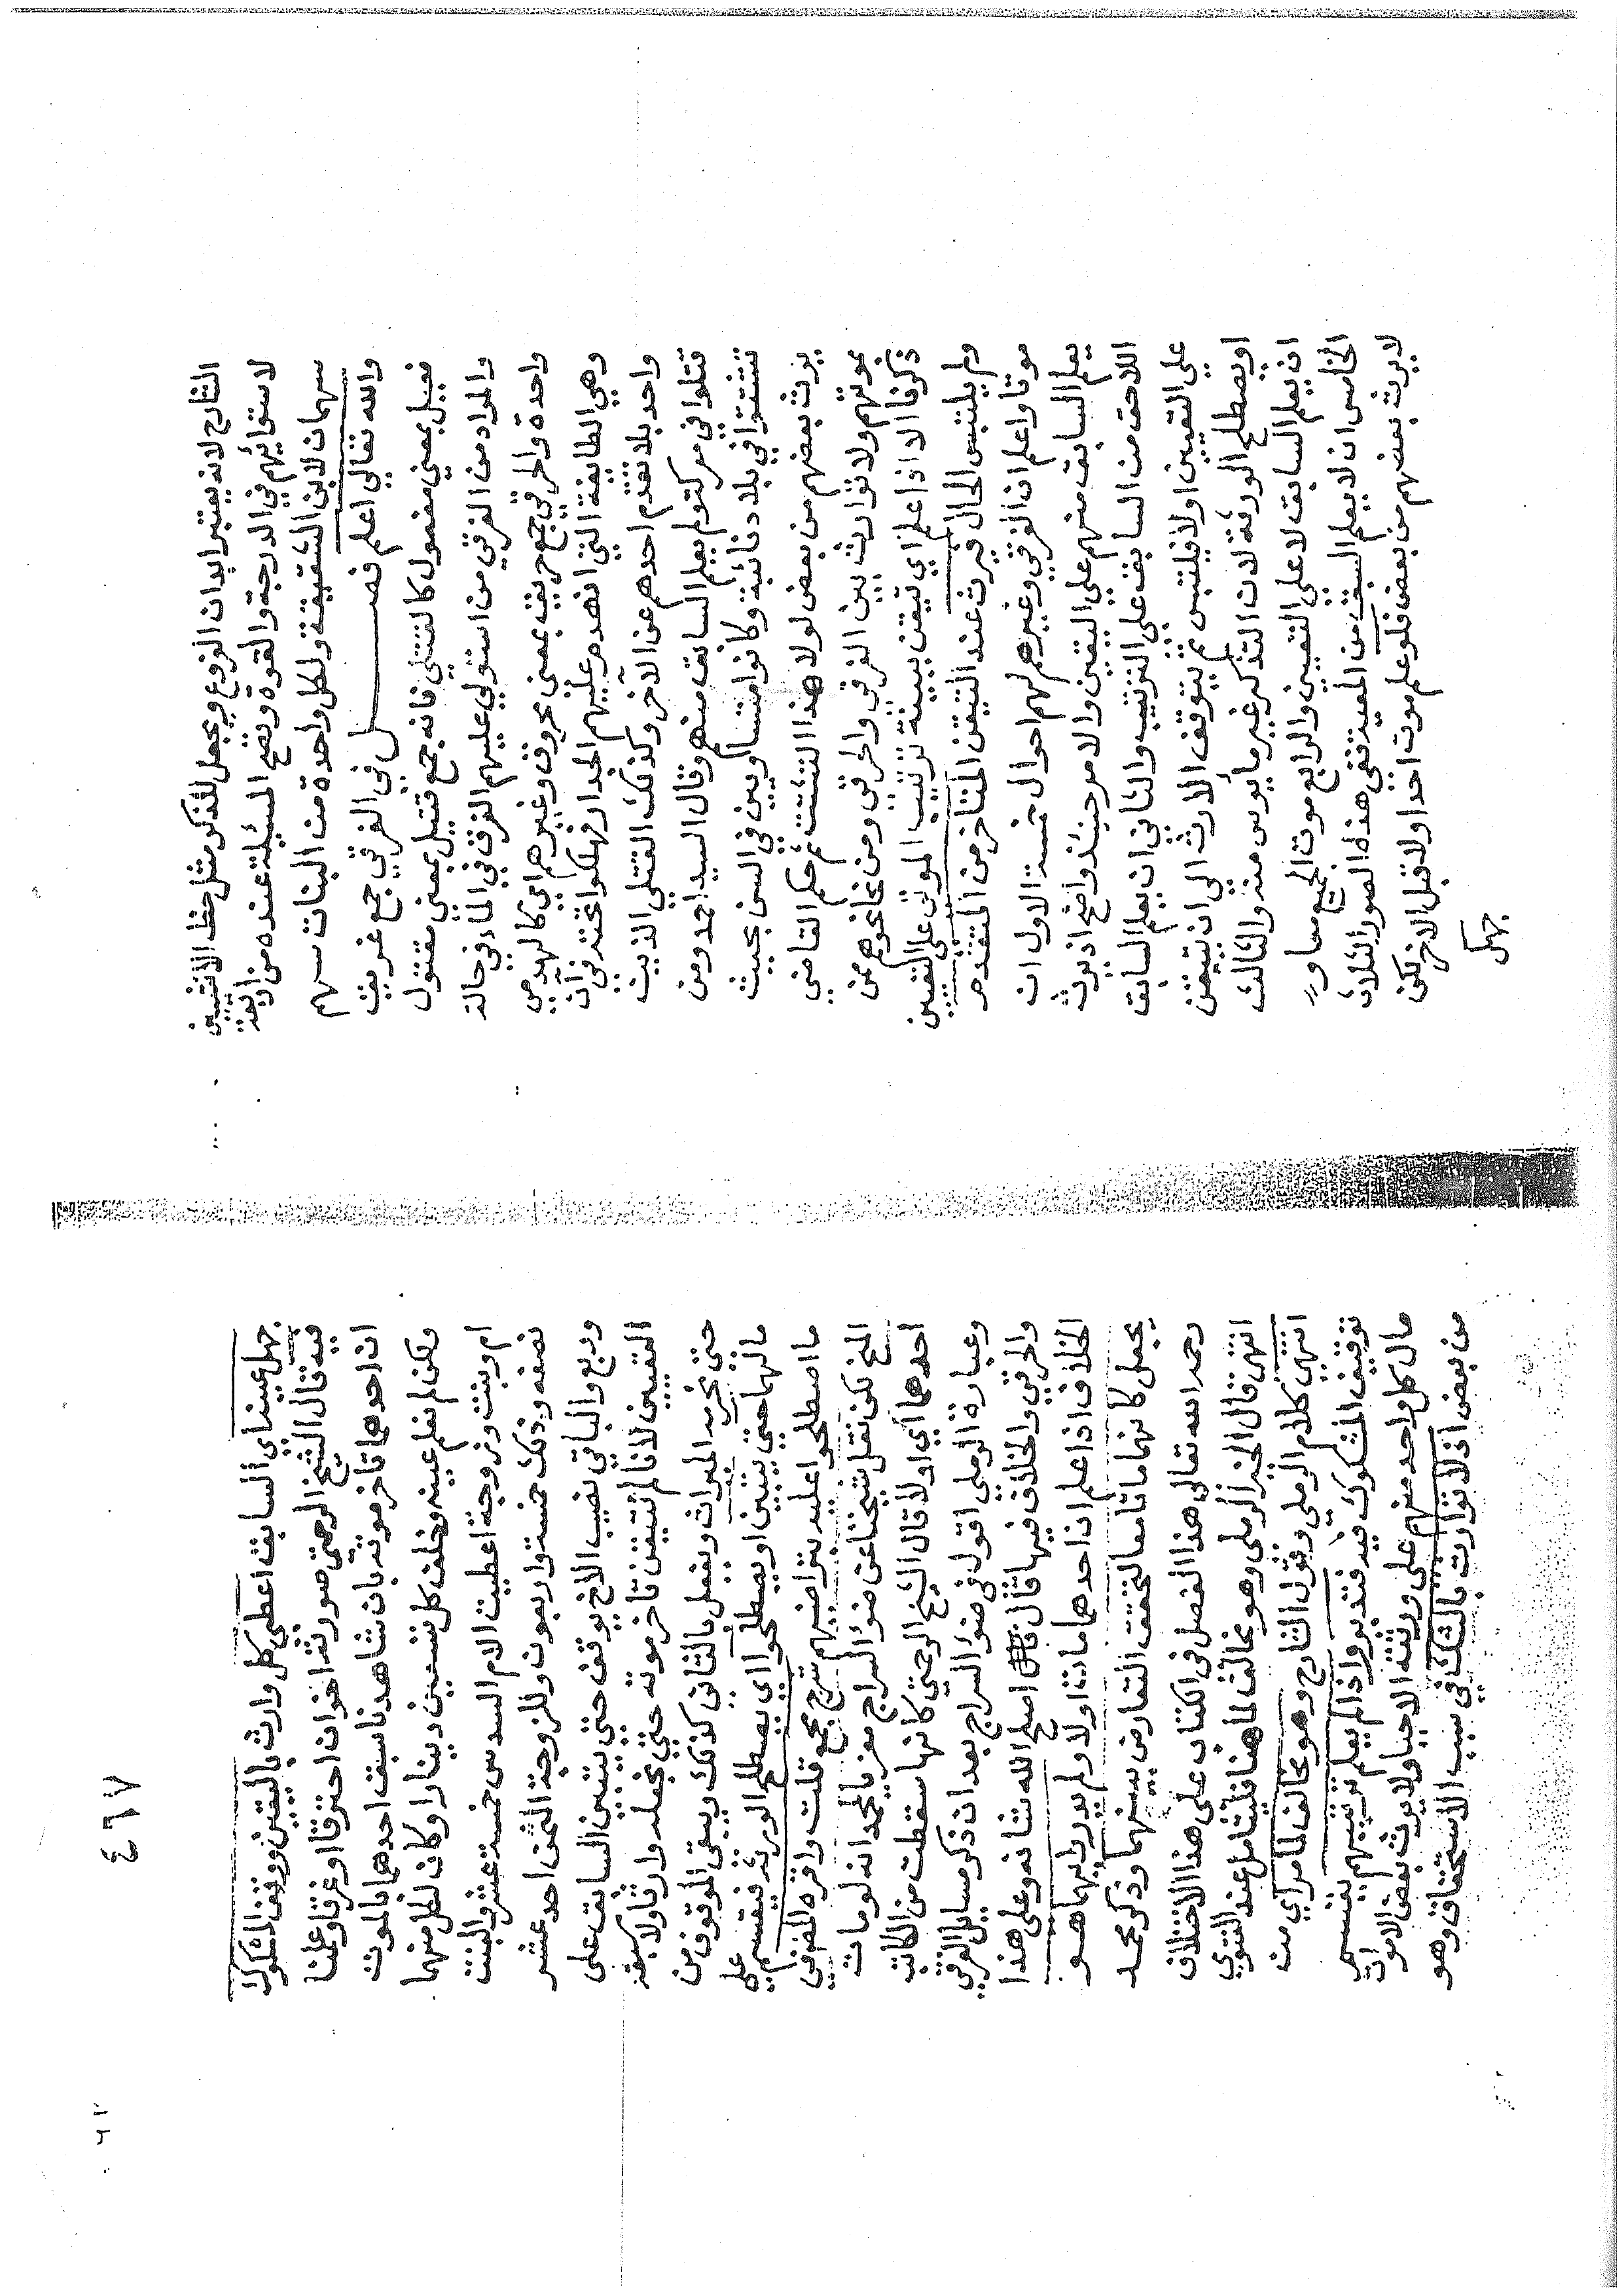 الشارح لانه يعتبر ابدان الفروع ويجعل للذكر مثل حظ الانثيين
لاستوائهم في الدرجة والقوة وتصح المسئلة عنده من اربعة
سهمان لابن الشقيقة ولكل واحدة من البنات سهم
والله تعالي اعلم فصل في الغرقي جمع غريق
فعيل بمعني مفعول كالقتلي فانه جمع قتيل بمعني مقتول
والمراد من الغرقي من استولي عليهم الغرق في الماء في حالة
واحدة والحرقي جمع حريق بمعني محروق وغيرهم اي كالهدمي
وهي الطايفة التي انهدم عليهم الجدار فهلكوا تحته في آن
واحد بلا تقدم احدهم عن الآخر وكذلك القتلي الذين
قتلوا في معركة ولم يعلم السابق منهم وقال السيد احمد ومن
تشتتوا في بلاد نائية وكانوا متساويين في السن بحيث
يرث بعضهم من بعض لولا هذا التشتت ثم حكم القاضي
بموتهم ولا توارث بين الغرقي والحرقي ومن نحا نحوهم ممن
ذكرنا الا اذا علم اي تيقن ببينة ترتيب الموتي علي التعيين
ولم يلتبس الحال فيرث عند التيقن المتاخر من المتقدم
موتا واعلم ان الغرقي وغيرهم لهم احوال خمسة الاول ان
يعلم السابق منهم علي اليقين والامر حينئذ واضح اذ يرث
اللاحق من السابق علي الترتيب والثاني ان يعلم السابق
علي التعيين اولا فيلتبس ثم يتوقف الارث الي ان يتيقن
او يصطلح الورثة لان التذكر غير مايوس منه والثالث
ان يعلم السابق لا علي التعيين والرابع موت الجميع معا و
الخامس ان لا يعلم السبق من المعية ففي هذه الصور الثلاث
لا يرث بعضهم من بعض فلو علم موت احد اولا قبل الاخر لكن
جهل
٤٦٧
جهل عينه اي السابق اعطي كل وارث باليقين ووقف المشكوك
فيه قال الشيخ الرحمتي صورته اخوان احترقا او غرقا وعلمنا
ان احدهما تاخر موته بان شاهدنا سبق احدهما بالموت
ولكن لم نعلم عينه وخلف كل تسعين دينارا وكان لكل منهما
ام وبنت وزوجة اعطيت الام السدس خمسة عشر والبنت
نصفه وذلك خمسة واربعون وللزوجة الثمن احد عشر
وربع والباقي نصيب الاخ يوقف حتي يتبين السابق علي
التعيين لانا لم نتيقن تاخر موته حتي نجعله وارثا ولا سبقه
حتي نحرمه الميراث ونفعل بالثاني كذلك ويبقي الموقوف من
مالهما حتي يتبين او يصطلحوا اي يصطلح الورثة فيقسم علي
ما اصطلحوا عليه بتراضيهم شرح مجمع قلت واقره المصنف في
المنح لكن نقل شيخنا عن ضوء السراج معزيا لمحمد انه لو مات
احدهما اي اولا قال الشيخ الرحمتي كانها سقطت من الكاتب
وعبارة الرملي اقول في ضوء السراج بعد ان ذكر مسايل الغرقي
والحرقي والخلاف فيها قال اصلح الله شانه وعلي هذا
الخلاف اذا علم ان احدهما مات اولا ولم يدر ايهما هو
يجعل كانهما ماتا معا لتحقق التعارض بينهما وذكر محمد
رحمه الله تعالي هذا الفصل في الكتاب علي هذا الاختلاف
انتهي قال الخير الرملي وهو مخالف لما هنا فليتامل عند الفتوي
انتهي كلام الرملي وقول الشارح وهو مخالف لما مر اي من
توقيف المشكوك فيه فتدبر واذا لم يعلم ترتيبهم يقسم
مال كل واحد منهم علي ورثته الاحيا ولا يرث بعض الاموات
من بعض اذ لا توارث بالشك في سبب الاستحقاق وهو